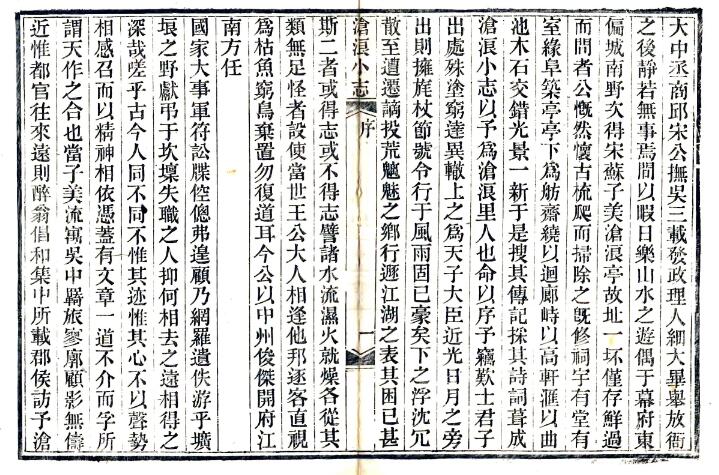 大中丞商邱宋公撫吳三載發政理人細大畢舉放衙
之後靜若無事焉間以暇日樂山水之遊偶于幕府東
偏城南野次得宋蘇子美滄浪亭故址一坏僅存鮮過
而問者公慨然懷古梳爬而掃除之旣修祠宇有堂有
室緣阜築亭亭下為舫齋繞以迴廊峙以高軒滙以曲
池木石交錯光景一新于是搜其傳記採其詩詞葺成
滄浪小志以予為滄浪里人也命以序予竊歎士君子
出處殊塗窮達異轍上之為天子大臣近光日月之旁
出則擁旄杖節號令行于風雨固已豪矣下之浮沈冗
散至遭遷謫投荒魑魅之鄉行遯江湖之表其困已甚
滄浪小志 序 一
斯二者或得志或不得志譬諸水流濕火就燥各從其
類無足怪者設使當世王公大人相逢他邦逐客直視
為枯魚窮鳥棄置勿復道耳今公以中州俊傑開府江
南方任
國家大事軍符訟牒倥傯弗遑顧乃網羅遺佚游乎壙
埌之野獻弔于坎壈失職之人抑何相去之遠相得之
深哉嗟乎古今人同不同不惟其迹惟其心不以聲勢
相感召而以精神相依憑蓋有文章一道不介而孚所
謂天作之合也當子美流寓吳中羇旅寥廓顧影無儔
近惟都官往來遠則醉翁倡和集中所載郡侯訪予滄